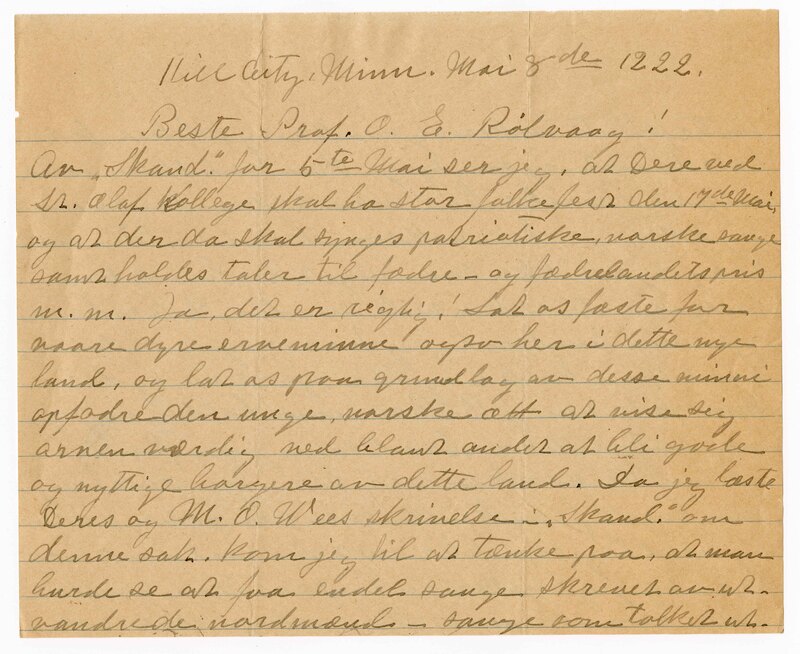 Hill City, Minn. Mai 8de 1922.
Beste Prof. O. E. Rölvaag!
Av „Skand." for 5te Mai ser jeg, at Dere ved
St. Olaf Kollege skal ha stor folkefest den 17de Mai,
og at der da skal synges patriotiske, norske sange
samt holdes taler til fædre- og fædrelandets pris
m. m. Ja, det er rigtig! Lat os fæste for
vaare dyre erveminne også her i dette nye
land, og lat os paa grundlag av desse minni
opfodre den unge, norske ætt at vise sig
arnen værdig ved blant andet at bli gode
og nyttige borgere av dette land. Da jeg læste
Deres og M. O. Wees skrivelse i „Skand." om
denne sak, kom jeg til at tænke paa, at man
burde se at faa endel sange skrevet av ut-
vandrede nordmænd – sange som tolket ut-